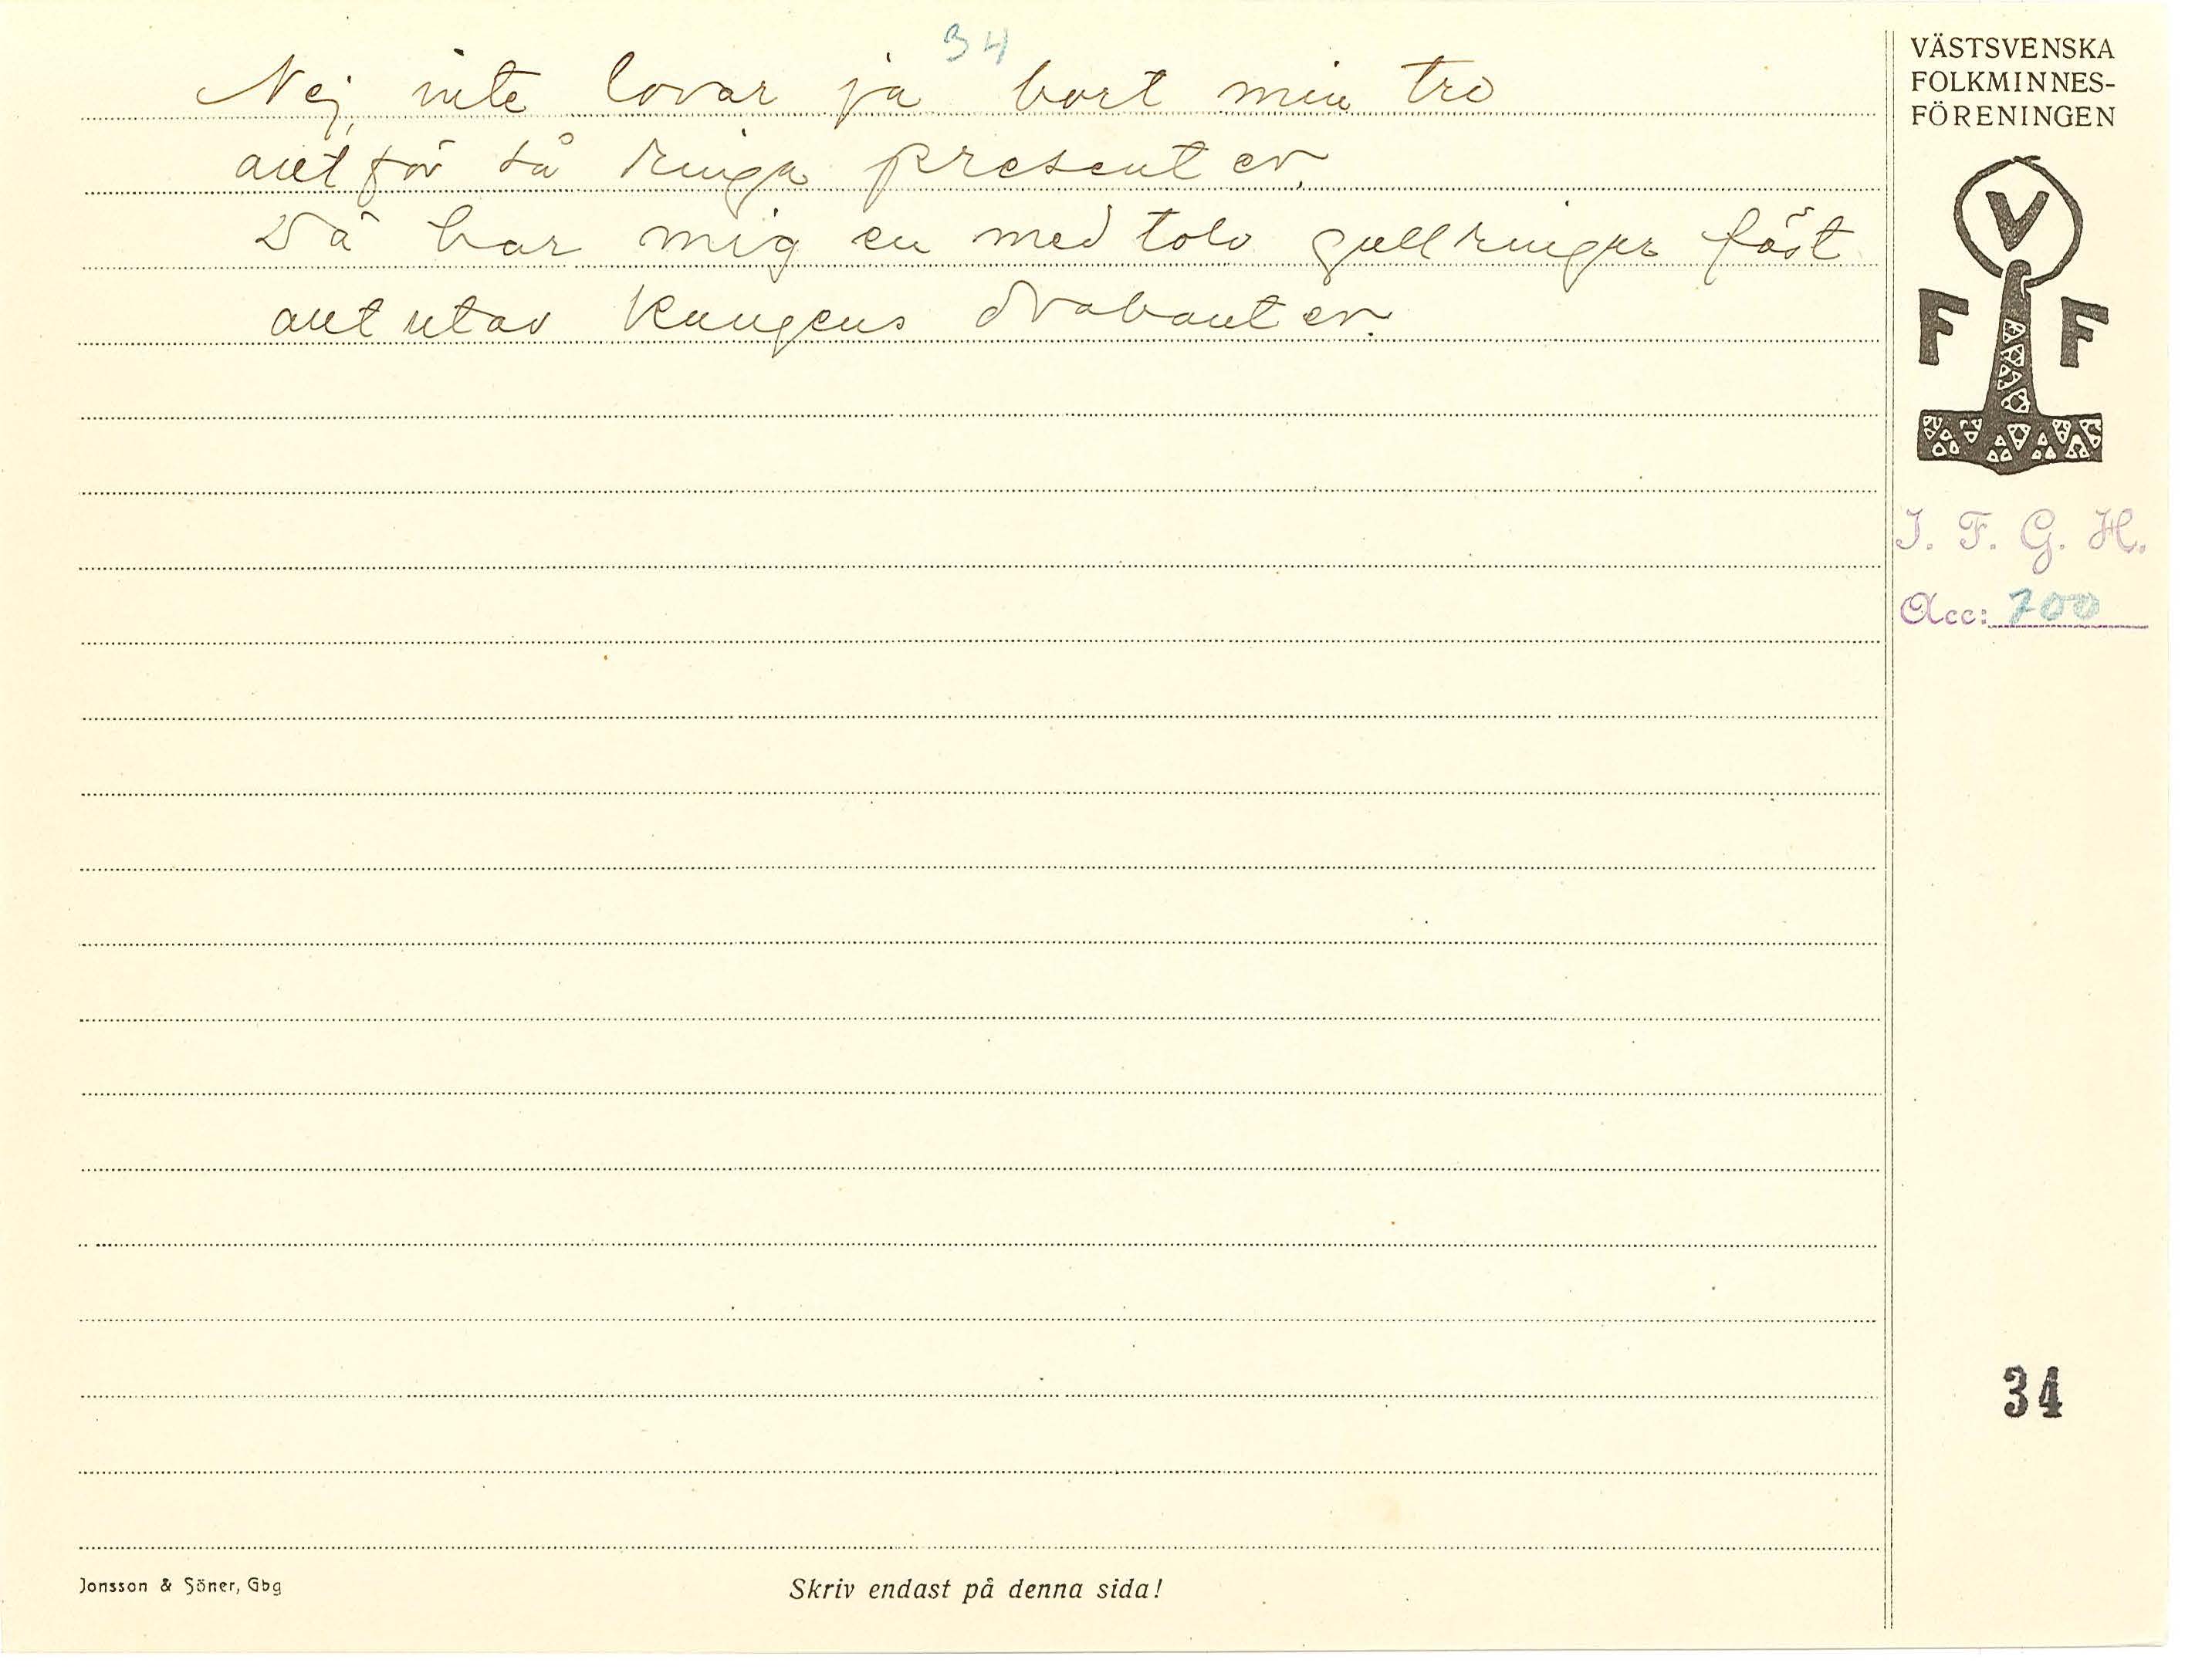 34
Nej, inte lovar ja bort min tro
allt för så ringa presenter.
Då har mig en med tolv gullringar fäst
allt utav kungens drabanter.
Jonsson & Söner, Gbg
Skriv endast på denna sida!
VÄSTSVENSKA
FOLKMINNES-
FÖRENINGEN
V
F F
I. F. G. H.
Acc: 700
34